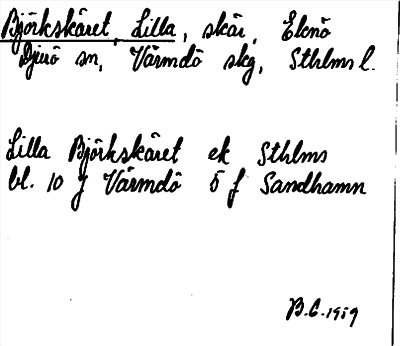 Björkskäret, Lilla, skär, Eknö
Djurö sn, Värmdö skg, Sthlms l.
Lilla Björkskäret ek Sthlms
bl. 10 J Värmdö 5 f Sandhamn
B.C. 1959